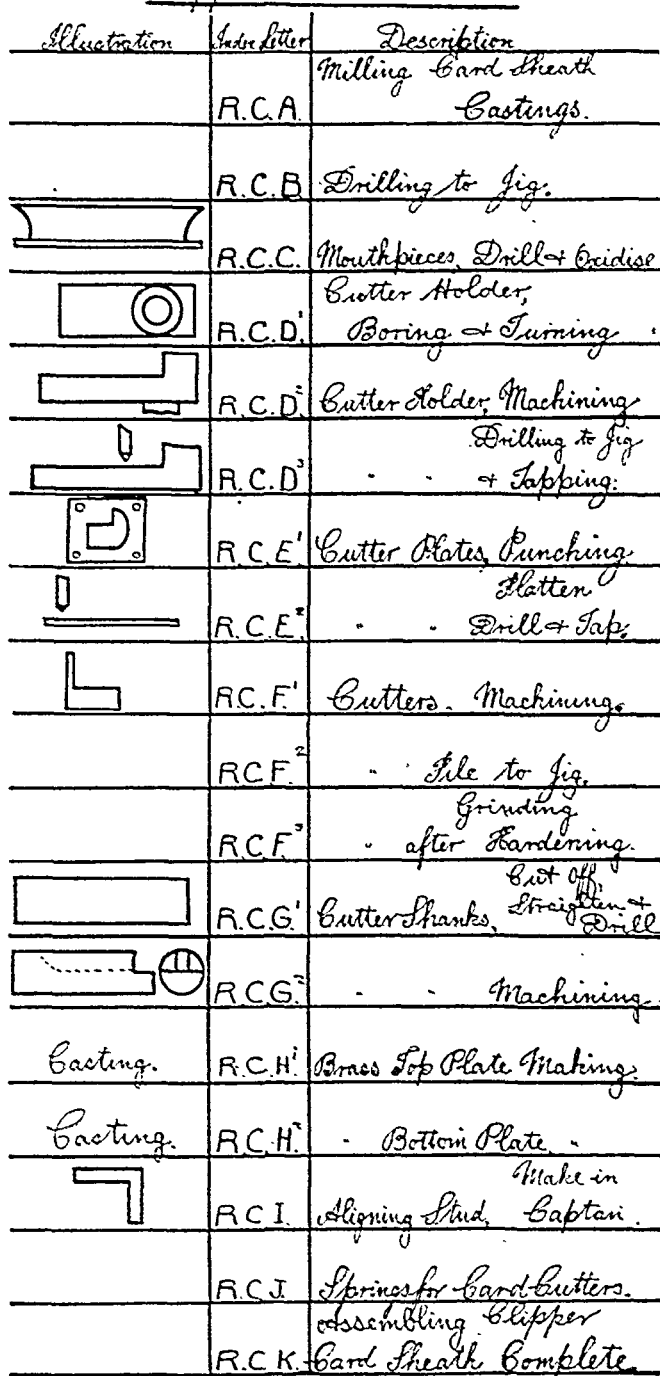 Illustration Index Letter Description
Milling Card Sheath
R.C.A. Castings.
R.C.B. Drilling to Jig.
R.C.C. Mouthpieces, Drill & Oxidise
Cutter Holder,
R.C.D¹. Boring & Turning
R.C.D². Cutter Holder, Machining
Drilling to Jig
R.C.D³ " " & Tapping.
R.C.E¹ Cutter Plates, Punching
Flatten
R.C.E². " " Drill & Tap.
R.C.F¹. Cutters. Machining.
R.C.F². " File to Jig.
Grinding
R.C.F³. " after Hardening.
Cut Off,
R.C.G¹. Cutter Shanks, Straighten &
Drill
R.C.G². " " Machining.
Casting. R.C.H¹. Brass Top Plate Making.
Casting. R.C.H². " Bottom Plate "
Make in
R.C.I. Aligning Stud, Captan.
R.C.J. Springs for Card Cutters.
Assembling Clipper
R.C.K. Card Sheath Complete.